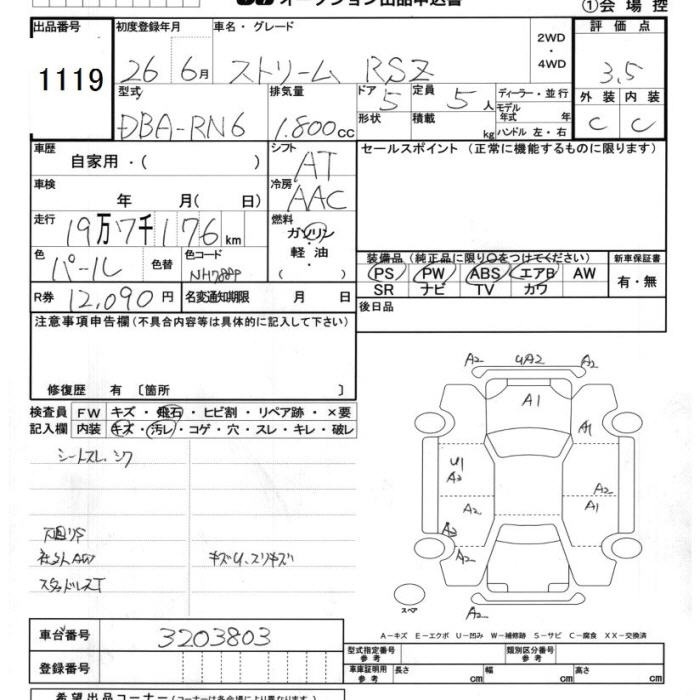 オークション出品申込書 ①会場控
出品番号 初度登録年月 車名・グレード 2WD・4WD 評価点
1119 26年 6月 ストリーム RSZ 3.5
型式 排気量 ドア 定員 ディーラー・並行 外装 内装
DBA-RN6 1.800cc 5 5人 モデル年式 年 C C
形状 積載 kg ハンドル 左・右
車歴 シフト セールスポイント(正常に機能するものに限ります)
自家用・( ) AT
車検 冷房
年 月( 日) AAC
走行 燃料
19万7千176km ガソリン・軽油・( )
色 色替 色コード 装備品(純正品に限り○をつけてください) 新車保証書
パール NH788P PS PW ABS エアB AW 有・無
SR ナビ TV カワ
R券 12,090円 名変通知期限 月 日 後日品
注意事項申告欄(不具合内容等は具体的に記入して下さい)
修復歴 有〔箇所 〕
検査員 FW キズ・飛石・ヒビ割・リペア跡・×要
記入欄 内装 キズ・汚レ・コゲ・穴・スレ・キレ・破レ
シートスレ、
社外AW キズU、スリキズ
A2 UA2 A2
A1
A1
U1
A2 A2
A2 A1
A2
A2 A2
スペア
A2
A-キズ E-エクボ U-凹み W-補修跡 S-サビ C-腐食 XX-交換済
車台番号 3203803 型式指定番号 参考 類別区分番号 参考
登録番号 車庫証明用 参考 長さ cm 幅 cm 高さ cm
希望出品コーナー(コーナーは各会場により異なります)